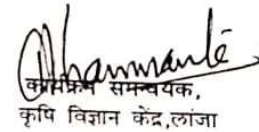 कार्यक्रम समन्वयक,
कृषि विज्ञान केंद्र,लांजा